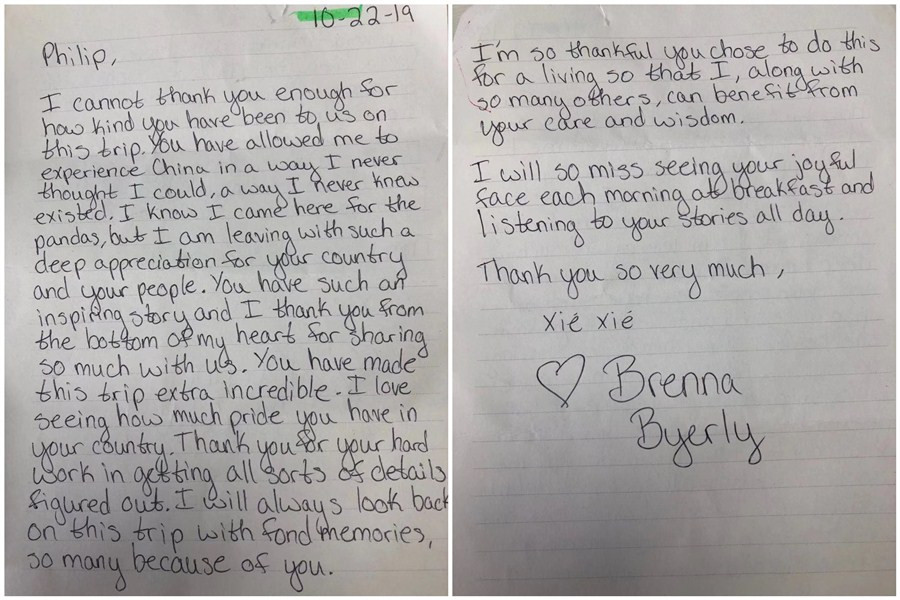 10-22-19
Philip,
I cannot thank you enough for
how kind you have been to us on
this trip. You have allowed me to
experience China in a way I never
thought I could, a way I never knew
existed. I know I came here for the
pandas, but I am leaving with such a
deep appreciation for your country
and your people. You have such an
inspiring story and I thank you from
the bottom of my heart for sharing
so much with us. You have made
this trip extra incredible. I love
seeing how much pride you have in
your country. Thank you for your hard
work in getting all sorts of details
figured out. I will always look back
on this trip with fond memories,
so many because of you.
I'm so thankful you chose to do this
for a living so that I, along with
so many others, can benefit from
your care and wisdom.
I will so miss seeing your joyful
face each morning at breakfast and
listening to your stories all day.
Thank you so very much,
xié xié
Brenna
Byerly